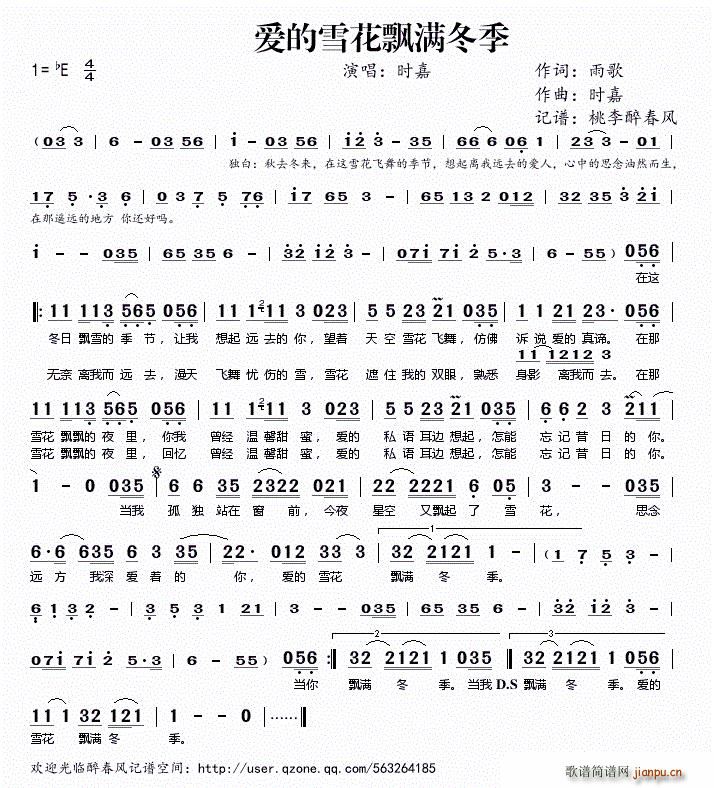 爱的雪花飘满冬季
1=♭E 4/4 演唱：时嘉 作词：雨歌
作曲：时嘉
记谱：桃李醉春风
(033 | 6 - 03 56 | i - 03 56 | i2 3 - 35 | 66 6 06 1 | 23 3 - 01 |
独白：秋去冬来，在这雪花飞舞的季节，想起离我远去的爱人，心中的思念油然而生，
17 5 · 3 6 | 03 7 5 76 | i 67 65 3 | 65 13 2 012 | 32 35 3 23 |
在那遥远的地方 你还好吗。
i - - 035 | 65 35 6 - | 32 i2 3 - | 07i 7i2 5·3 | 65 - - ) 056 |
在这
11 113 565 056 | 11 11 3 023 | 55 23 21 035 | 11 21 23· 056 |
冬日 飘雪的 季 节，让我 想起 远去的你，望着 天空 雪花飞舞，仿佛 诉说 爱的真谛。 在那
11 1212 3
无奈 离我而 远去，漫天 飞舞 忧伤的雪，雪花 遮住 我的双眼，熟悉 身影 离我而去。在那
11 113 665 056 | 11 22 3 023 | 55 23 21 035 | 66 23 211 |
雪花 飘飘的 夜 里，你我 曾经 温馨甜 蜜，爱的 私语 耳边想起，怎能 忘记昔日的你。
雪花 飘飘的 夜 里，回忆 曾经 温馨甜 蜜，爱的 私语 耳边想起，怎能 忘记昔日的你。
1 - 0 035 | 66 35 2322 021 | 22 2221 6 05 | 3 - - 035 |
当我 孤独 站在 窗 前，今夜 星空 又飘起了 雪 花， 思念
6·6 635 6 3 | 35 - - | 22· 012 33 | 32 2121 1 - | (1 7 5 3 - |
远方 我深爱着的 你， 爱的 雪花 飘满 冬 季。
6 13 2 - | 33 5 1 21 | 3 - - 035 | 65 35 6 - | 32 i2 3 - |
07i 7i2 5·3 | 65 - - ) 056 :| 32 2121 1 035 | 32 2121 1 056 |
当你 飘满 冬 季。当我 D.S 飘满 冬 季。爱的
11 1 32 121 | 1 - - 0 | 0······ ||
雪花 飘满冬 季。
欢迎光临醉春风记谱空间：http://user.qzone.qq.com/563264185
歌谱简谱网
jianpu.cn